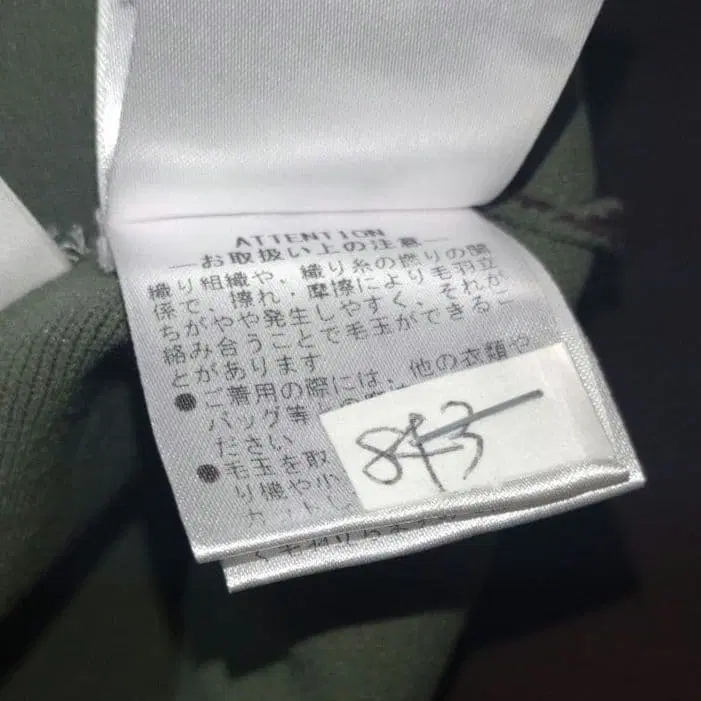 ATTENTION
お取扱い上の注意
織り組織や、織り糸の撚りの関
係で、擦れ・摩擦により毛羽立
ちがやや発生しやすく、それが
絡み合うことで毛玉ができるこ
とがあります
●ご着用の際には、他の衣類や
バッグ等
ださい
●毛玉を取
り機や小